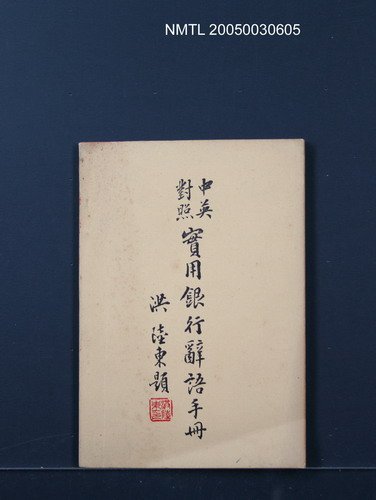 NMTL 20050030605
中英
對照
實用銀行辭語手冊
洪陸東題